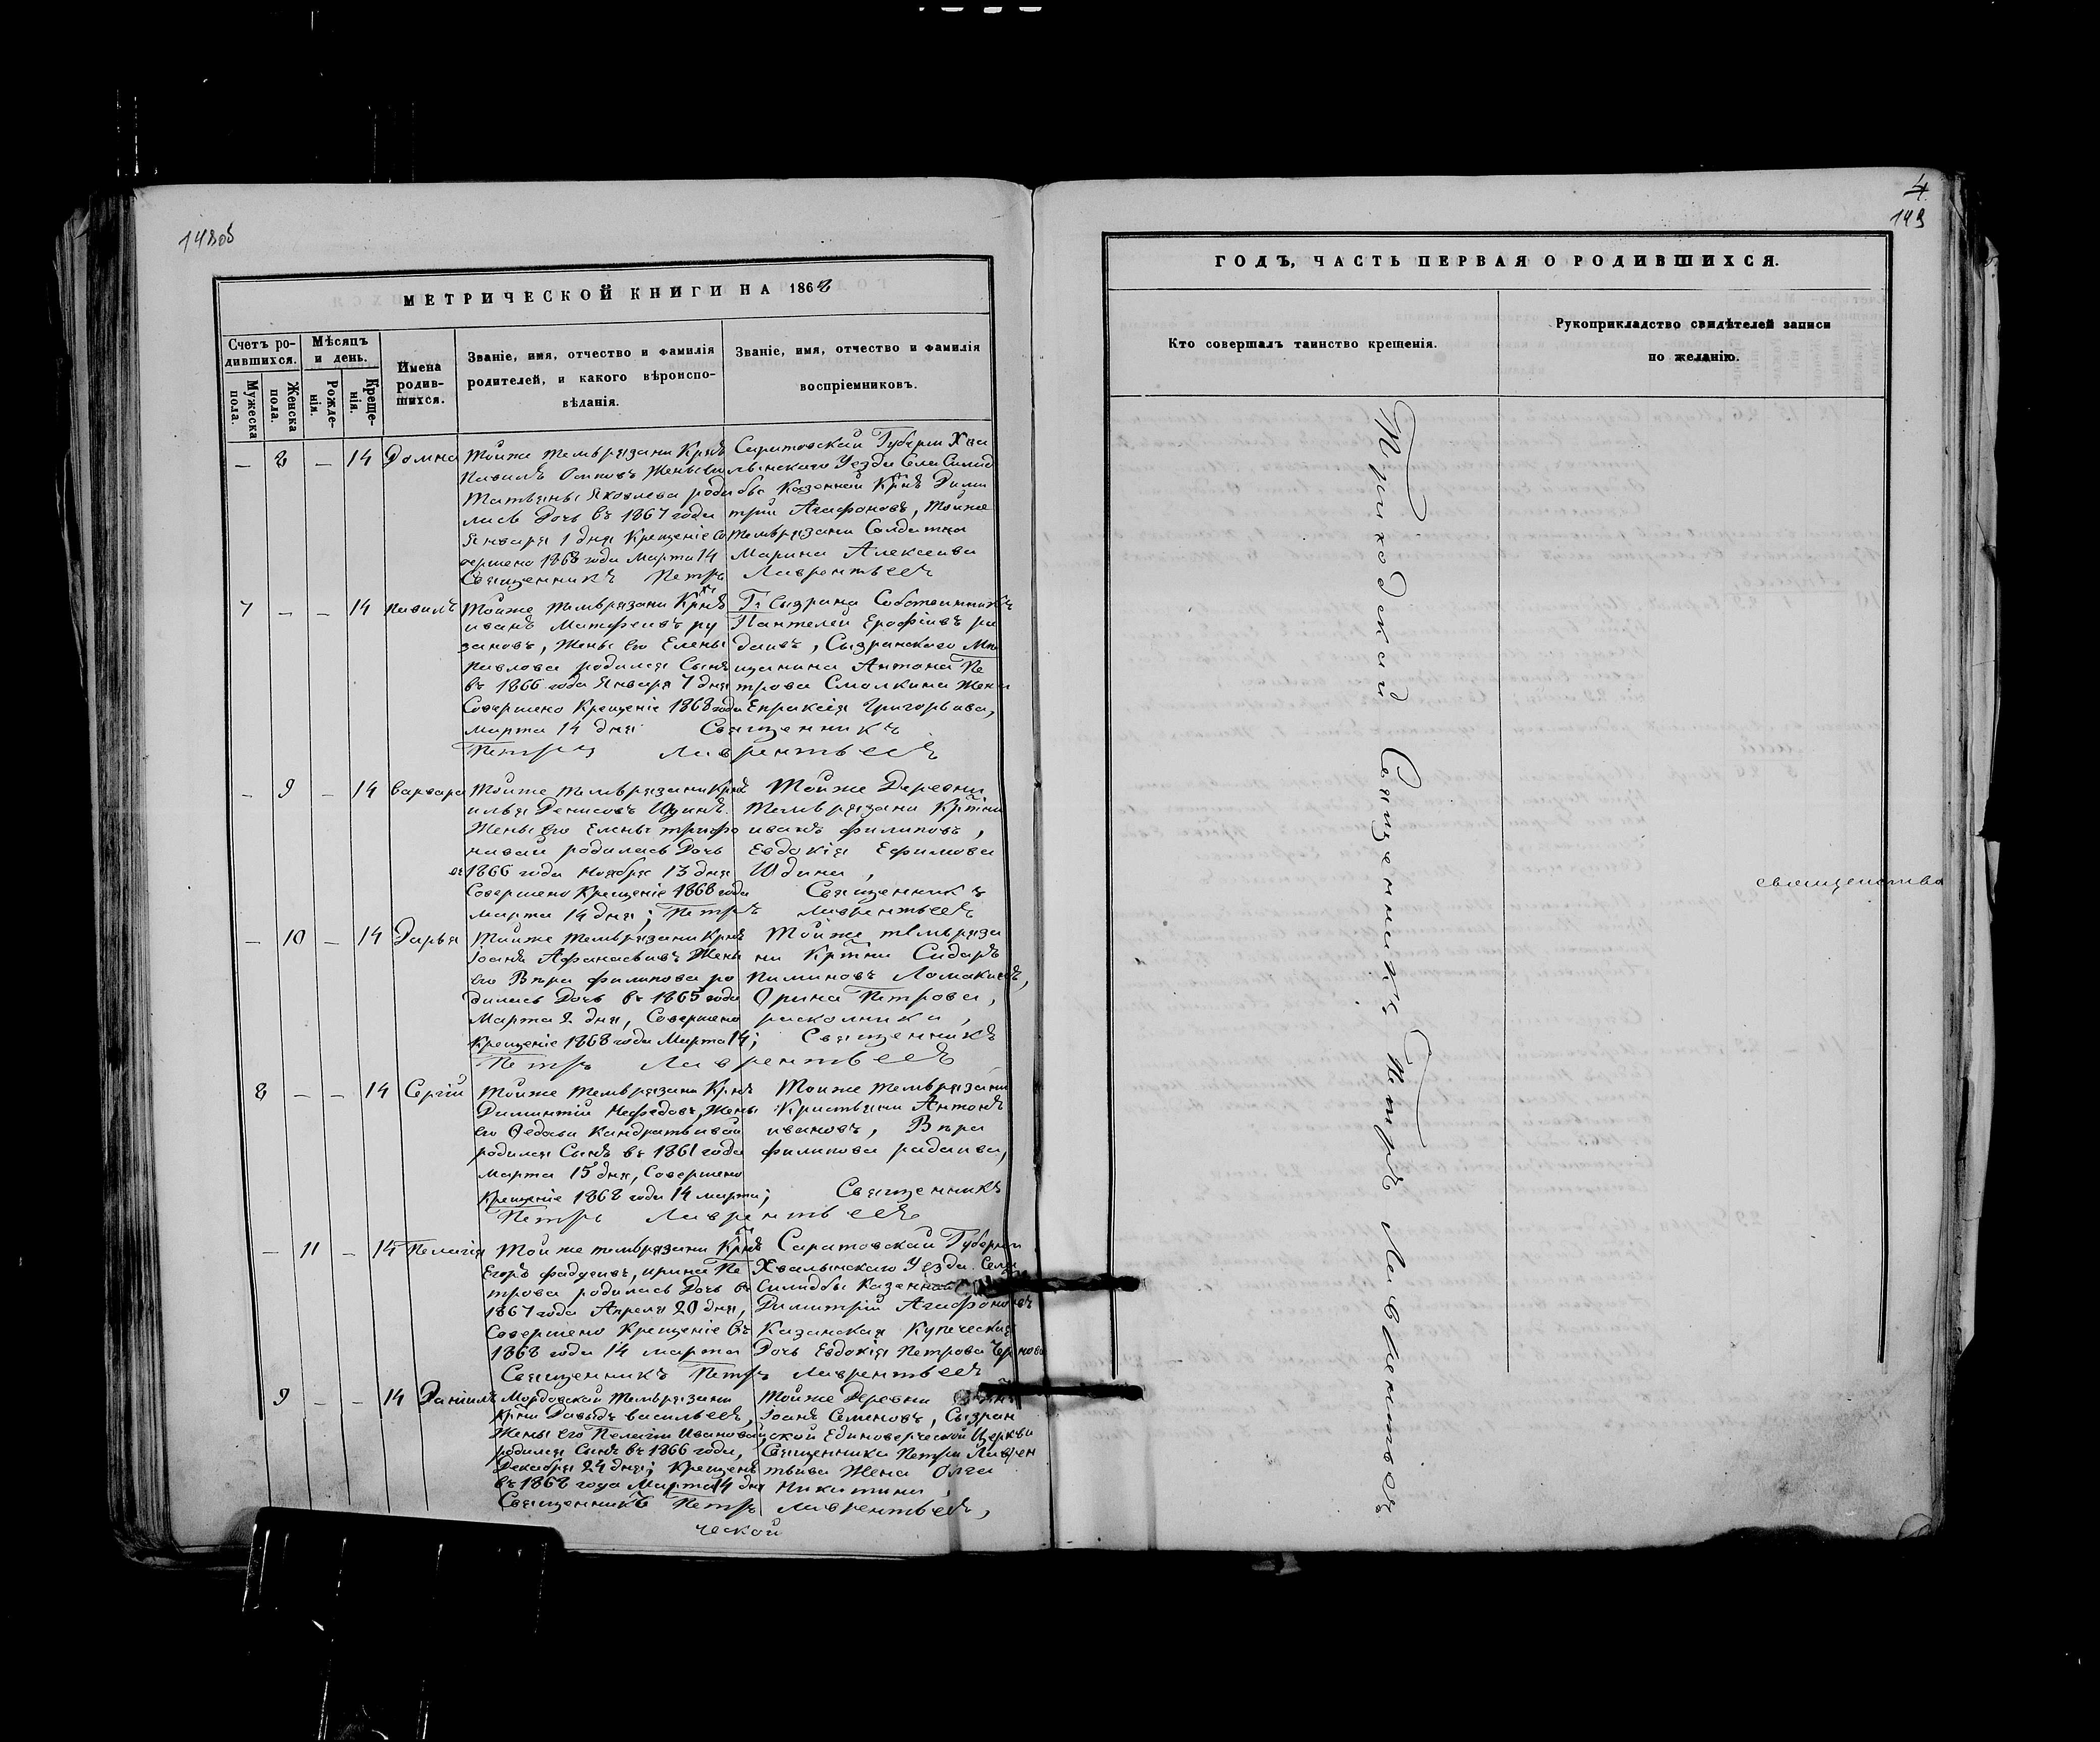 148об
МЕТРИЧЕСКОЙ КНИГИ НА 1868
Счетъ ро-
дившихся.
Мѣсяцъ
и день.
Мужеска
пола.
Женска
пола.
Рожде-
нія.
Креще-
нія.
Имена
родив-
шихся.
Званіе, имя, отчество и фамилія
родителей, и какого вѣроиспо-
вѣданія.
Званіе, имя, отчество и фамилія
воспріемниковъ.
— 8 — 14 Домна
Тойже темврязани Крнъ
Павилъ Осиповъ Жены его
Татьяны Яковлева роди
лись Дочь въ 1867 года
Января 1 дня Крещеніе со
вершено 1868 года Марта 14
Саратовскаи Губерни Хва
лынскаго Уезда Села Силид
бы Казенной Крнъ Дими
трий Агафоновъ, Тойже
темврязани Солдатка
Марина Алексеива
Священникъ Петръ Лаврентьевъ
7 — — 14 Павилъ
Тойже темврязани Крнъ
иванъ Матфеивъ ру
зановъ, Жены его Елены
Павлова родился Сынъ
въ 1866 года Января 7 дня
Совершено Крещеніе 1868 года
марта 14 дня
Гъ Сызрана Собственникъ
Пантелей Ерофіивъ ра
даивъ, Сызранскаго Ме
щанина Антона Пе
трова Смолкина Жена
Епраксія Григорьива,
Священникъ
Петръ Лаврентьевъ
— 9 — 14 варвара
Тойже темврязани Крнъ
илья Денисовъ Юдинъ.
Жены его Елены трифо
навай родилась Дочь
въ 1866 года Ноября 13 дня
Совершено Крещеніе 1868 года
марта 14 дня; Петръ
Тойже Деревни
Темврязани Кртни
иванъ филиповъ,
Евдокія Ефимова
Юдина,
Священникъ
Лаврентьевъ
— 10 — 14 Дарья
Тойже темврязани Крнъ
іоанъ Афанасьивъ Жены
его Вѣра филипова ро
дилась Дочь въ 1865 года
Марта 2 дня, Совершено
Крещеніе 1868 года Марта 14;
Тойже темвряза
ни Кртни Сидаръ
Пиминовъ Ломакинъ,
Орина Петрова,
расколники,
Священникъ
Петръ Лаврентьевъ
8 — — 14 Сергій
Тойже темврязани Крнъ
Диминтій Нефедовъ, Жены
его Федоси Кандратьивай
родился Сынъ въ 1861 года
Марта 15 дня, Совершено
Крещеніе 1868 года 14 марта;
Тойже темврязани
Кристьяни Антонъ
ивановъ, Вѣра
филипова радаива,
Священникъ
Петръ Лаврентьевъ
— 11 — 14 Пелагія
Той же темврязани Крнъ
Егоръ фадуеивъ, ирина Пе
трова родилась Дочь въ
1867 года Апреля 20 дня,
Совершено Крещеніе въ
1868 года 14 марта
Саратовскаи Губерни
Хвалынскаго Уезда. Села
Силидбы Казенной
Димитрій Агафоновъ
Казанская Купеческая
Дочь Евдокія Петрова Чернова
Священникъ Петръ Лаврентьевъ
9 — — 14 Даниилъ
Мордовской Темврязани
Кртни Давыдъ васильевъ,
Жены его Пелагии Ивановай
родился Сынъ въ 1866 года,
Декабря 24 дня; Крещенъ
въ 1868 года Марта 14 дня
Тойже Деревни
Іоанъ Семеновъ, Сызран
ской Единоверческой Церкви
Священника Петра Лаврен
тьива Жена Олга
Никитина,
Священникъ Петръ Лаврентьевъ,
ческой
4
149
ГОДЪ, ЧАСТЬ ПЕРВАЯ О РОДИВШИХСЯ.
Кто совершалъ таинство крещенія.
Рукоприкладство свидѣтелей записи
по желанію.
Приходскай Священникъ Петръ Лаврентьевъ
священства